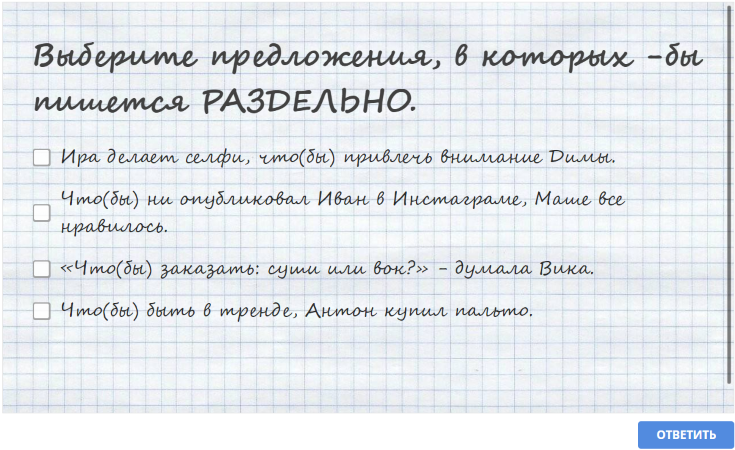 Выберите предложения, в которых -бы
пишется РАЗДЕЛЬНО.
Ира делает селфи, что(бы) привлечь внимание Димы.
Что(бы) ни опубликовал Иван в Инстаграме, Маше все
нравилось.
«Что(бы) заказать: суши или вок?» - думала Вика.
Что(бы) быть в тренде, Антон купил пальто.
ОТВЕТИТЬ